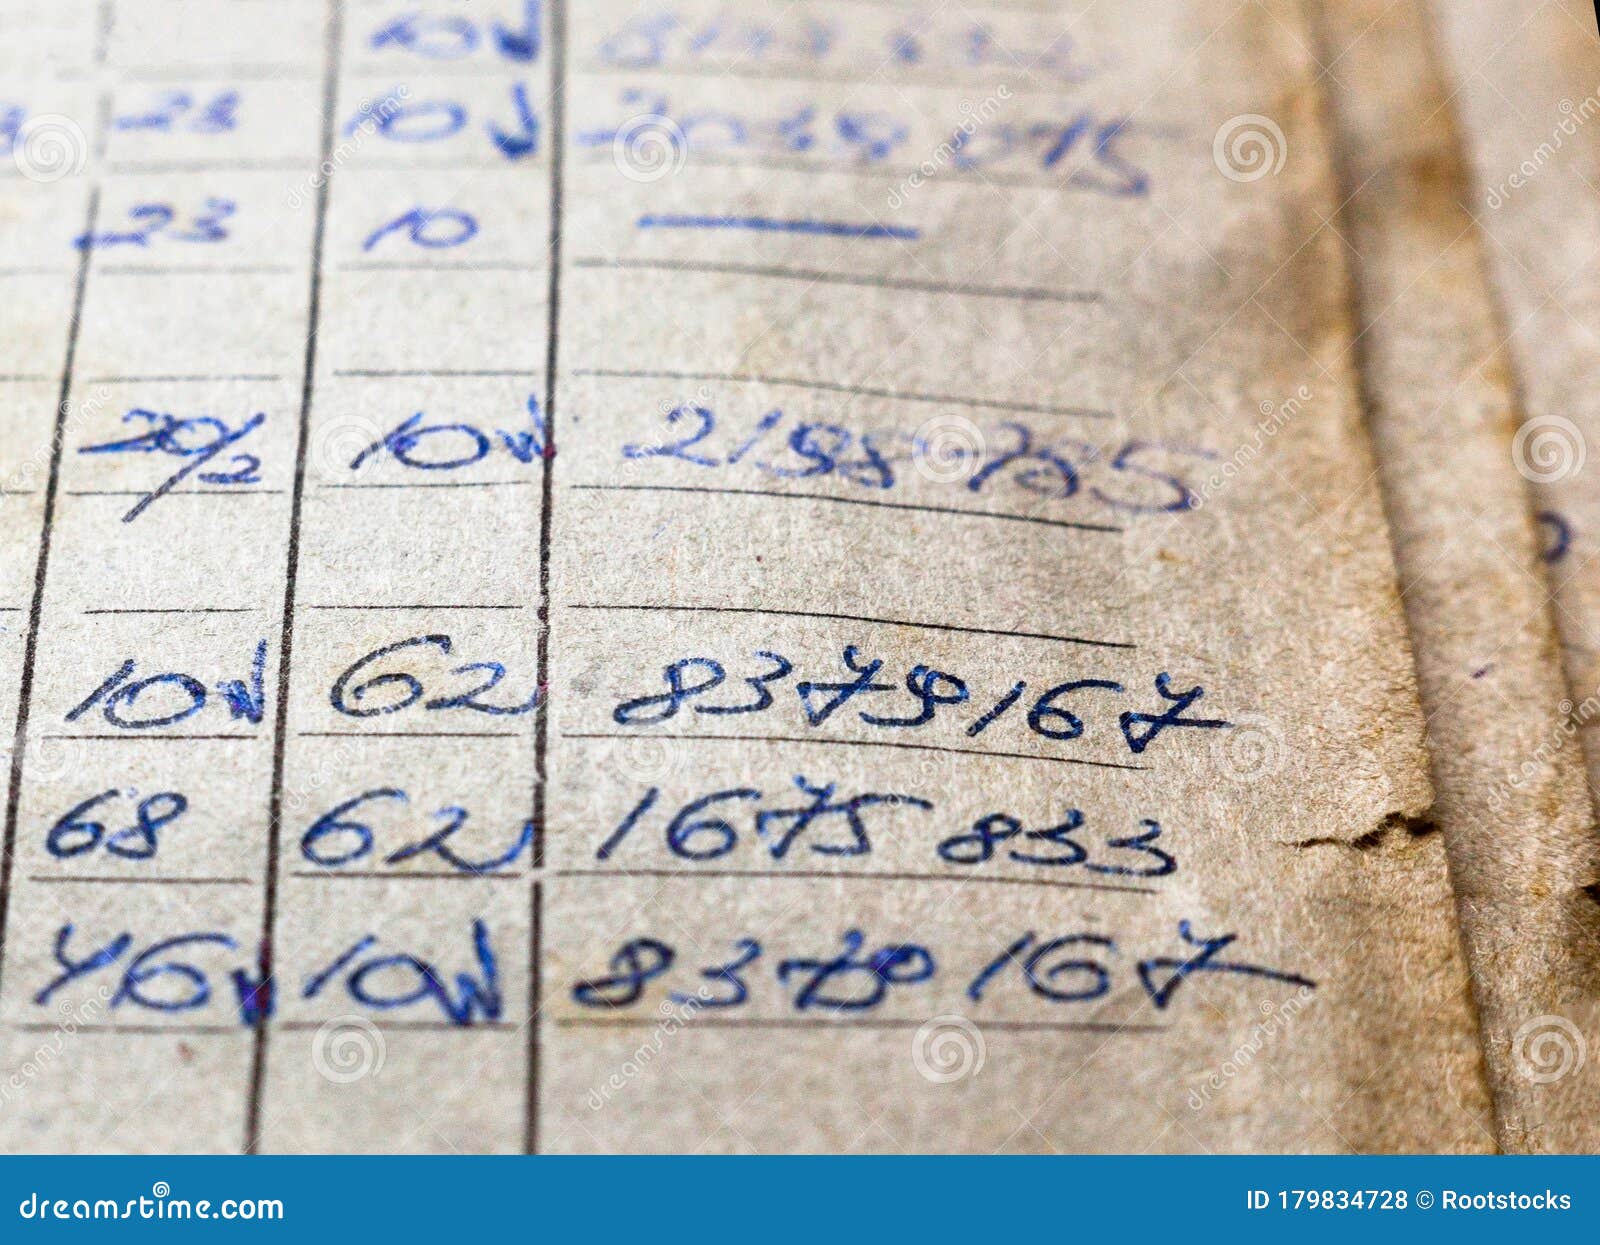 10
23 10
23 10 —
20/2 10 2198765
10 62 8379167
68 62 1675833
46 10 8379167
dreamstime.com ID 179834728 © Rootstocks